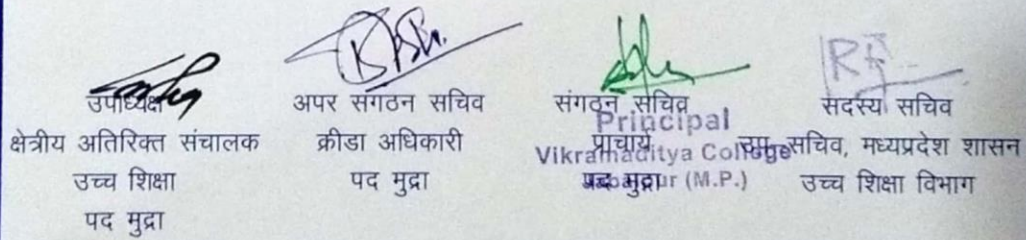 उपाध्यक्ष
क्षेत्रीय अतिरिक्त संचालक
उच्च शिक्षा
पद मुद्रा
अपर संगठन सचिव
क्रीडा अधिकारी
पद मुद्रा
संगठन सचिव
प्राचार्य
पद मुद्रा
Principal
Vikramaditya College
(M.P.)
सदस्य सचिव
उप सचिव, मध्यप्रदेश शासन
उच्च शिक्षा विभाग